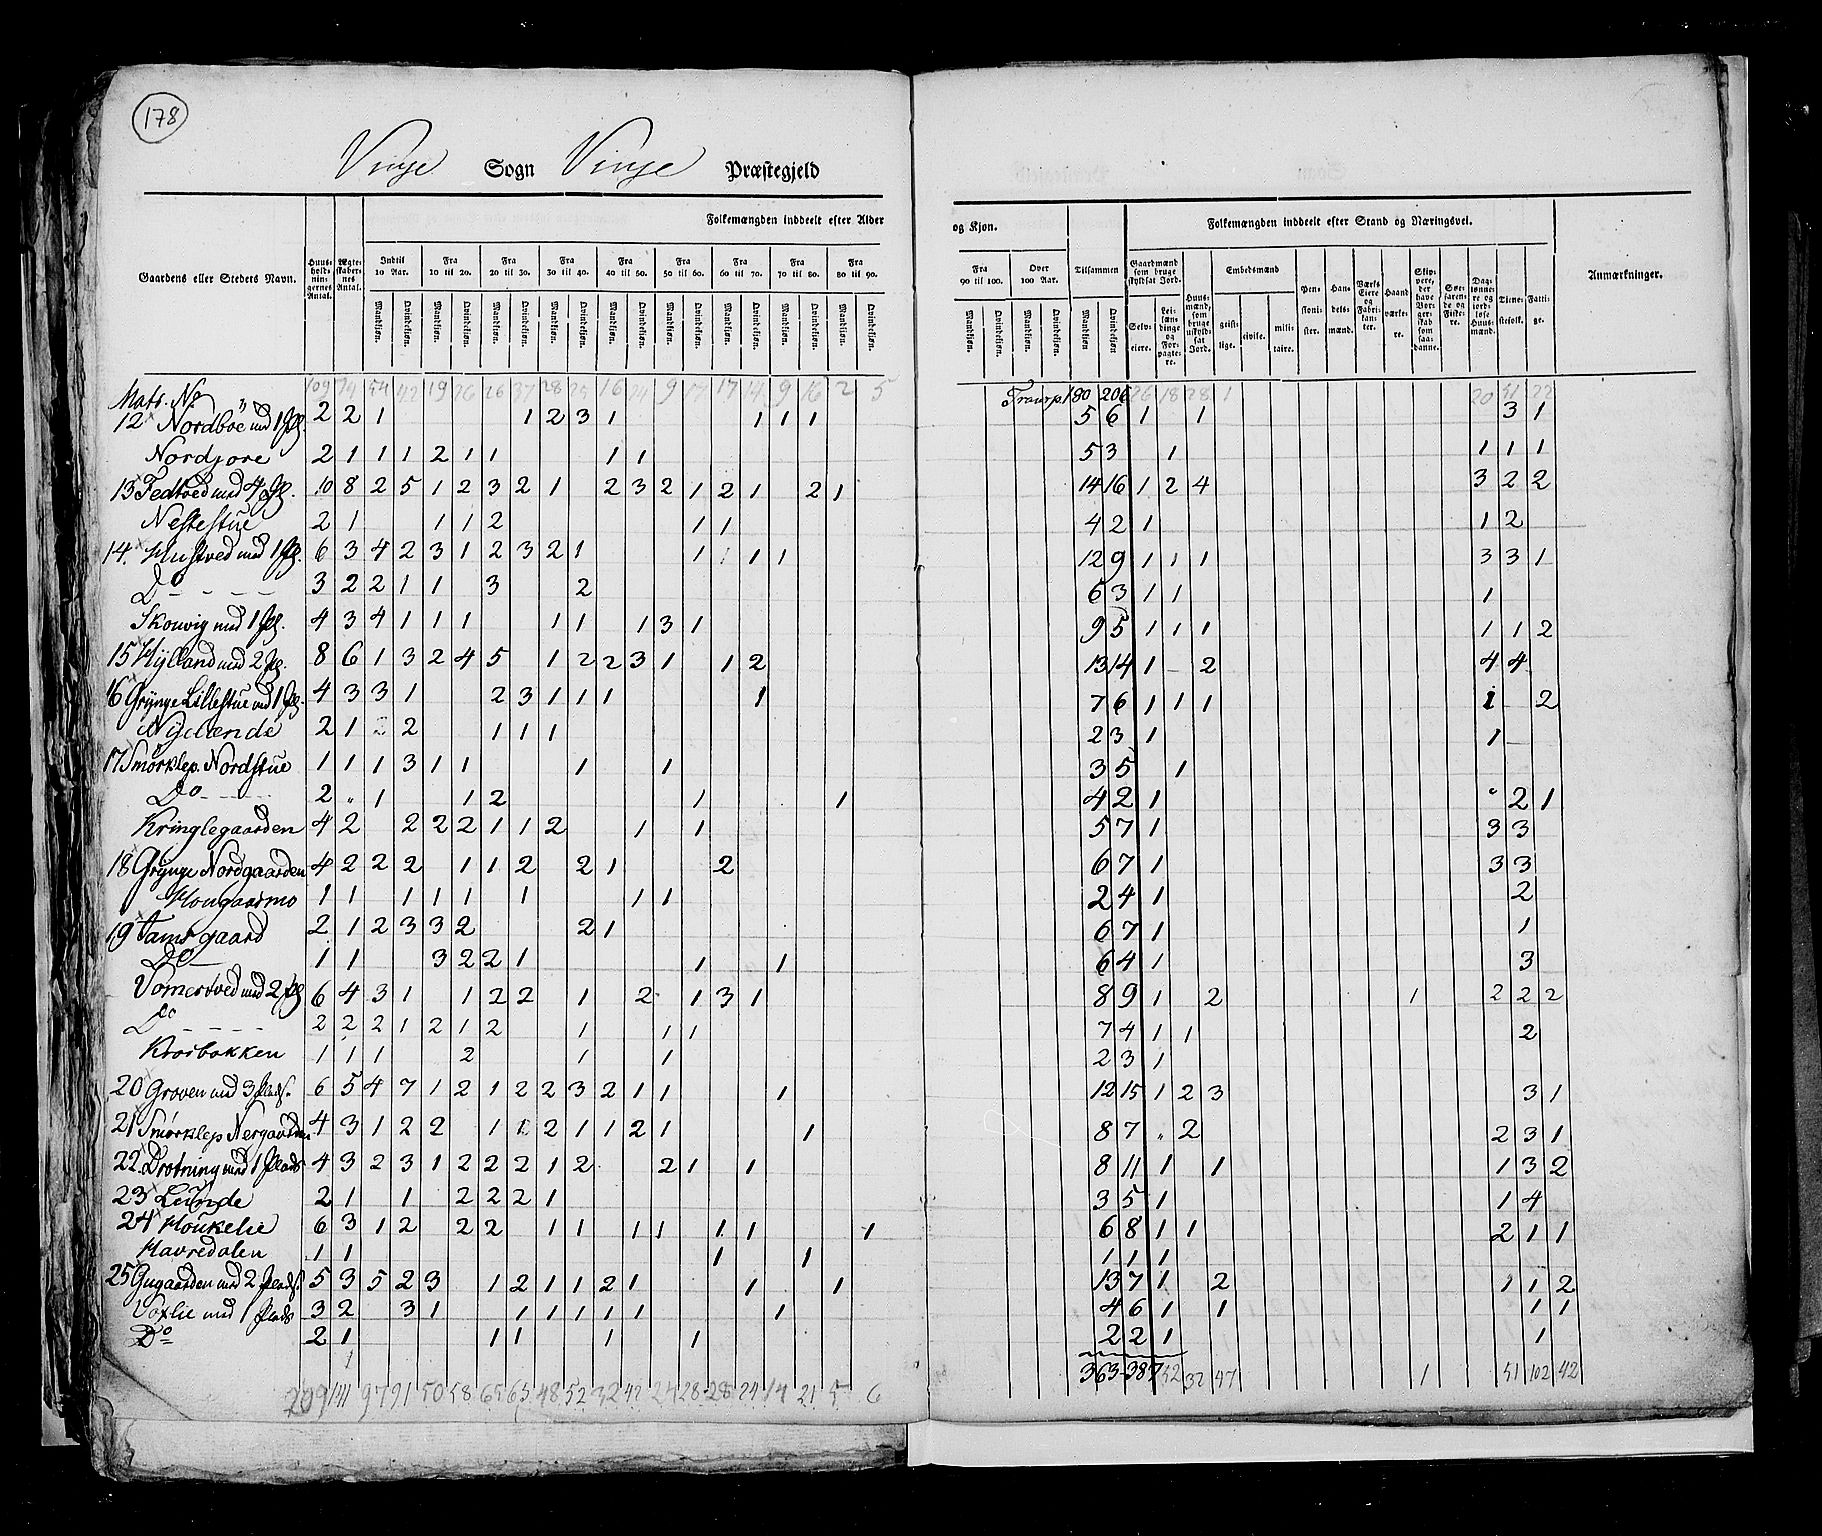 178
Vinje Sogn Vinje Præstegjeld
Folkemængden inddeelt efter Alder og Kjøn.
Folkemængden inddeelt efter Stand og Næringsvei.
Gaardens eller Stedets Navn.
Huusholdningernes Antal.
Ægteskabernes Antal.
Indtil 10 Aar.
Fra 10 til 20.
Fra 20 til 30.
Fra 30 til 40.
Fra 40 til 50.
Fra 50 til 60.
Fra 60 til 70.
Fra 70 til 80.
Fra 80 til 90.
Fra 90 til 100.
Over 100 Aar.
Tilsammen
Mandkjøn. Qvindekjøn.
Gaardmænd som bruge skyldsat Jord.
Selveiere.
Leilændinge og Forpagtere.
Huusmænd, som bruge uskyldsat Jord.
Embedsmænd
geistlige.
civile.
militaire.
Pensionister.
Handelsmænd.
Værks Eiere og Fabrikanter.
Haandværkere.
Skippere, der have Borgerskab som saadanne.
Søefarende og Fiskere.
Daglønnere og jordløse Huusmænd.
Tienestefolk.
Fattige.
Anmærkninger.
Matr. No 109 74 54 42 19 26 26 37 28 25 16 24 9 17 17 14 9 16 2 5 Transp. 180 206 26 18 28 1 20 51 22
12 Nordboe med 1 Pl. 2 2 1 1 2 3 1 1 1 1 5 6 1 1 3 1
Nordjore 2 1 1 1 2 1 1 1 1 5 3 1 1 1 1
13 Fedtved med 4 Pl. 10 8 2 5 1 2 3 2 1 2 3 2 1 2 1 2 1 14 16 1 2 4 3 2 2
Nestestue 2 1 1 1 2 1 1 4 2 1 1 2
14. Hustved med 1 Pl. 6 3 4 2 3 1 2 3 2 1 1 1 1 12 9 1 1 1 3 3 1
Do 3 2 2 1 1 3 2 6 3 1 1 1
Skouvig med 1 Pl. 4 3 4 1 1 1 1 1 1 3 1 9 5 1 1 1 1 1 2
15 Hylland med 2 Pl. 8 6 1 3 2 4 5 1 2 2 3 1 1 2 13 14 1 - 2 4 4
16 Grynge Lillestue med 1 Pl. 4 3 3 1 2 3 1 1 1 1 7 6 1 1 1 1 2
Nylænde 2 1 2 2 1 1 1 2 3 1 1
17 Smørklep. Nordstue 1 1 1 3 1 1 1 1 3 5 1
Do 2 " 1 1 2 1 1 4 2 1 2 1
Kringlegaarden 4 2 2 2 2 1 1 2 1 1 5 7 1 3 3
18 Grynge Nordgaarden 4 2 2 2 1 1 2 2 1 2 6 7 1 3 3
Hougaarmo 1 1 1 1 1 1 1 1 2 4 1 2
19 Jamsgaard 2 1 2 3 3 2 2 1 6 7 1 1
Do 1 1 3 2 2 1 1 1 6 4 1 3
Vomertved med 2 Pl 6 4 3 1 1 2 2 1 2 1 3 1 8 9 1 2 1 2 2 2
Do 2 2 2 1 2 1 2 1 1 1 7 4 1 1 2
Krosbakken 1 1 1 2 1 1 2 3 1
20 Groven med 3 Plads. 6 5 4 7 1 2 1 2 2 3 2 1 1 1 12 15 1 2 3 3 1
21 Smørklep Nergaarden 4 3 1 2 2 1 1 2 1 1 2 1 1 8 7 " 2 2 3 1
22 Drotning med 1 Plads 4 3 2 3 1 2 2 2 1 2 2 1 1 8 11 1 1 1 3 2
23 Lunde 2 1 1 2 2 2 1 3 5 1 1 4
24 Houkelie 6 3 1 2 2 2 1 1 1 1 1 1 1 6 8 1 1 2 1 1
Havredalen 1 1 1 1 1 1 1
25 Gugaarden med 2 Plads. 5 3 5 2 3 1 2 1 1 2 1 1 1 13 7 1 2 1 1 2
Voxlie med 1 Plads 3 2 3 1 1 1 1 1 1 1 4 6 1 1 1 1
Do 2 1 1 1 1 1 2 2 1 1
209 141 97 91 50 58 65 63 48 52 32 42 24 28 28 24 14 21 5 6 363 387 52 32 47 1 51 102 42